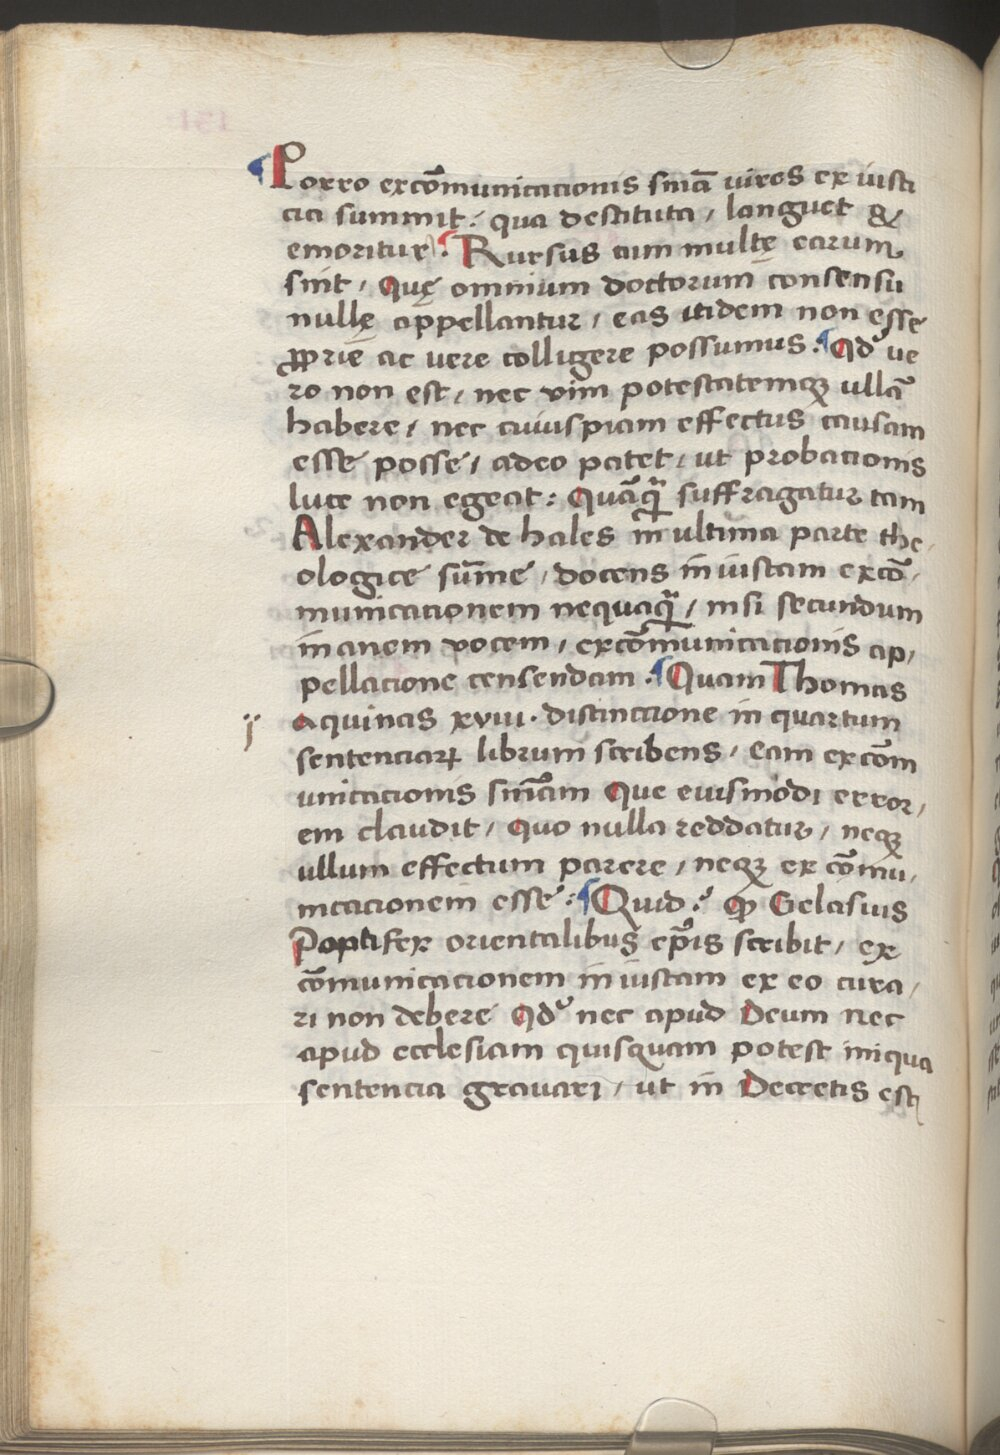 Porro excõmunicacionis sniã uires ex iusti
cia summit: qua destituta / languet &
emoritur). Rursus cum multę earum
sint / Quę omnium doctorum consensu
nullę appellantur / eas itidem non esse
ꝓprie ac vere colligere possumus. Qd ve
ro non est / nec vim potestatemqꝫ ullã
habere / nec cuiuspiam effectus causam
esse posse / adeo patet / ut probacionis
luce non egeat: Quãqꝫ suffragatur tam
Alexander de hales in ultima parte the /
ologice sum̃e / docens iniustam excõ /
municacionem nequaqꝫ / nisi secundum
inanem vocem / excõmunicacionis ap /
pellacione censendam. Quam Thomas
ij
aquinas xviii. distinctione in quartum
sentenciarꝝ librum scribens / eam excõm
unicacionis sniãm Que eiusmodi error /
em claudit / Quo nulla reddatur / neqꝫ
ullum effectum parere / neqꝫ excõmu /
nicacionem esse: Quid? Qꝫ Gelasius
Pontifex orientalibus ep̃is scribit / ex
cõmunicacionem iniustam ex eo cura /
ri non debere Qd nec apud Deum nec
apud ecclesiam quisquam potest iniqua
sentencia grauari / ut in Decretis est